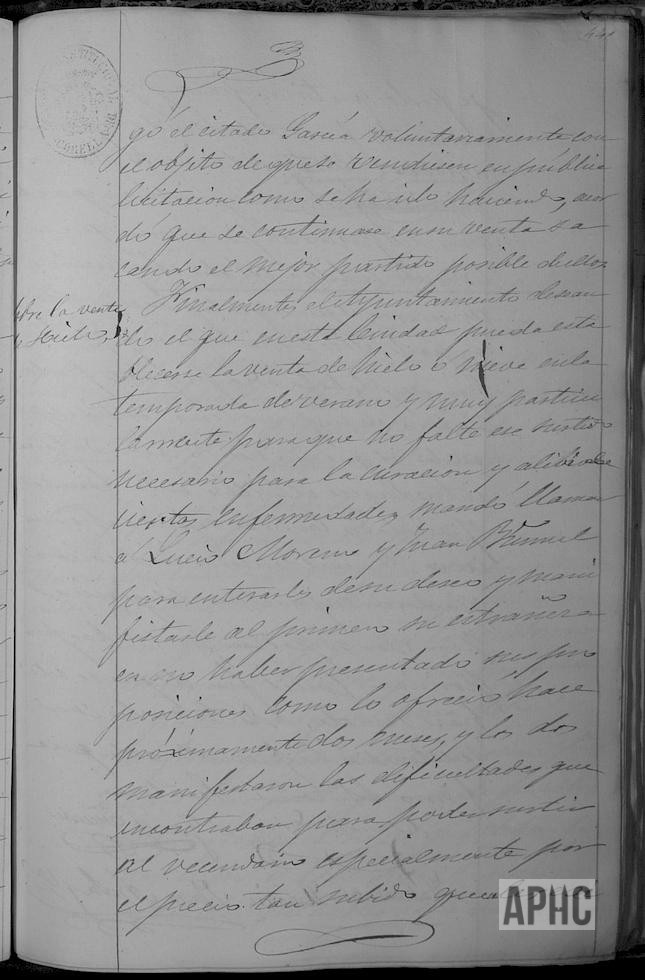 441
gó el citado García voluntariamente con
el objeto de que se vendiesen en pública
licitacion como se ha ido haciendo, acor
dó que se continuase en su venta sa
cando el mejor partido posible de ellos.
Sobre la venta
Hielo
Finalmente, el Ayuntamiento desean
do el que en esta Ciudad pueda esta
blecerse la venta de hielo ó nieve en la
temporada de verano y muy particu
larmente para que no falte ese surtido
necesario para la curacion y alivio de
ciertas enfermedades, mandó llamar
á Lucio Moreno y Juan
para enterarles de su deseo y mani
festarle al primero su estrañeza
en no haber presentado sus pro
posiciones como lo ofreció hace
próximamente dos meses, y los dos
manifestaron las dificultades que
encontraban para poder surtir
al vecindario especialmente por
el precio tan subido que
APHC